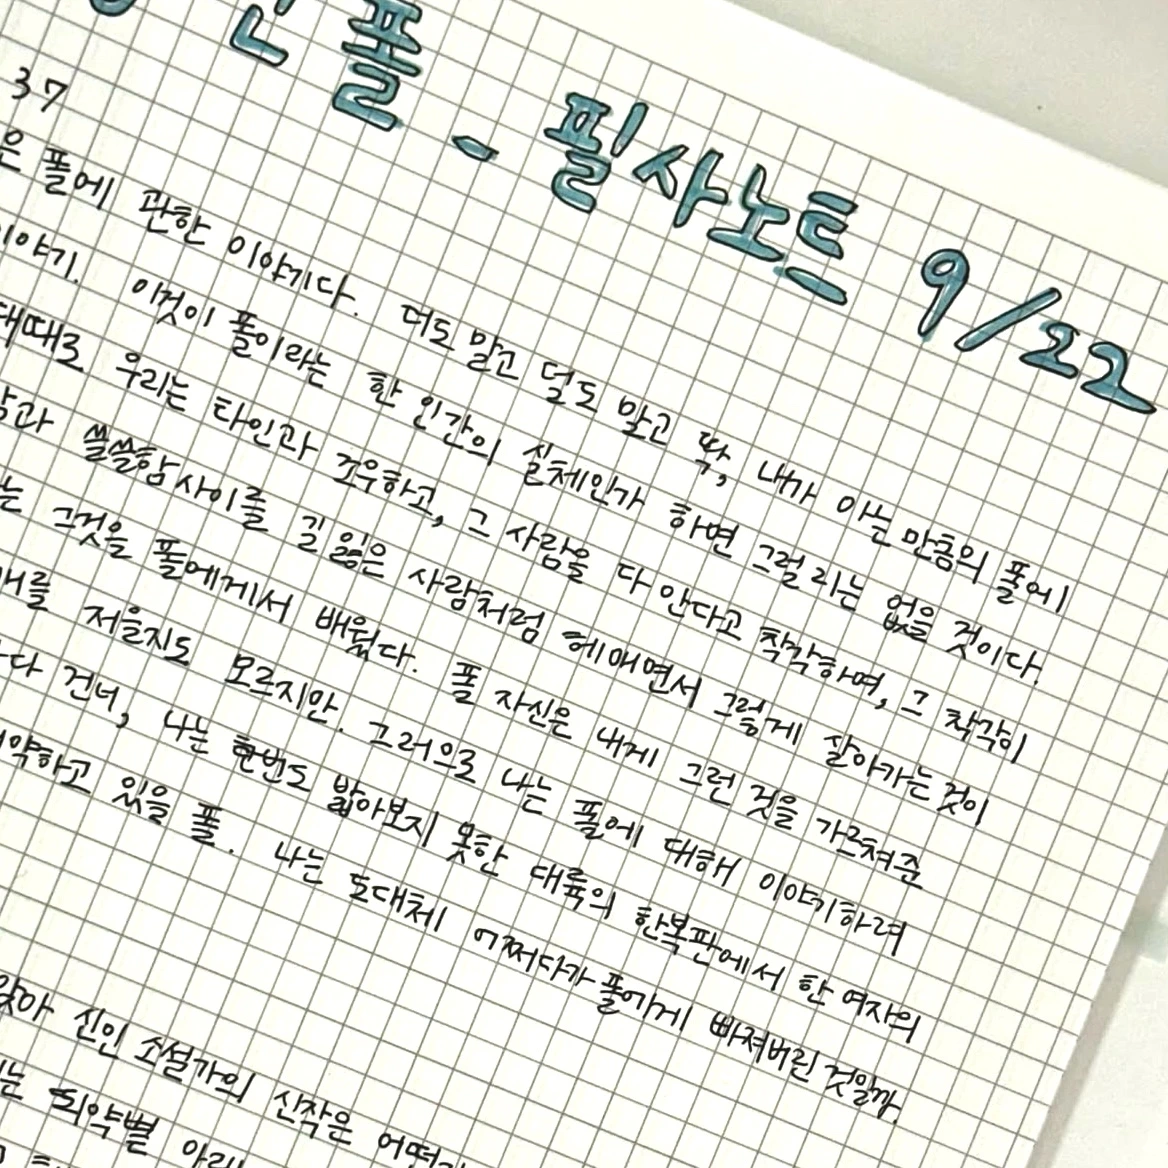 인 폴 - 필사노트 9/22
37
은 폴에 관한 이야기다. 더도 말고 덜도 말고 딱, 내가 아는 만큼의 폴에
이야기. 이것이 폴이라는 한 인간의 실체인가 하면 그럴 리는 없을 것이다.
때때로 우리는 타인과 조우하고, 그 사람을 다 안다고 착각하며, 그 착각이
쓸쓸함 사이를 길 잃은 사람처럼 헤매면서 그렇게 살아가는 것이
는 그것을 폴에게서 배웠다. 폴 자신은 내게 그런 것을 가르쳐준
를 저을지도 모르지만. 그러므로 나는 폴에 대해 이야기하려
다 건너, 나는 한번도 밟아보지 못한 대륙의 한복판에서 한 여자의
약하고 있을 폴. 나는 도대체 어쩌다가 폴에게 빠져버린 것일까.
앉아 신인 소설가의 신작은
는 뙤약볕